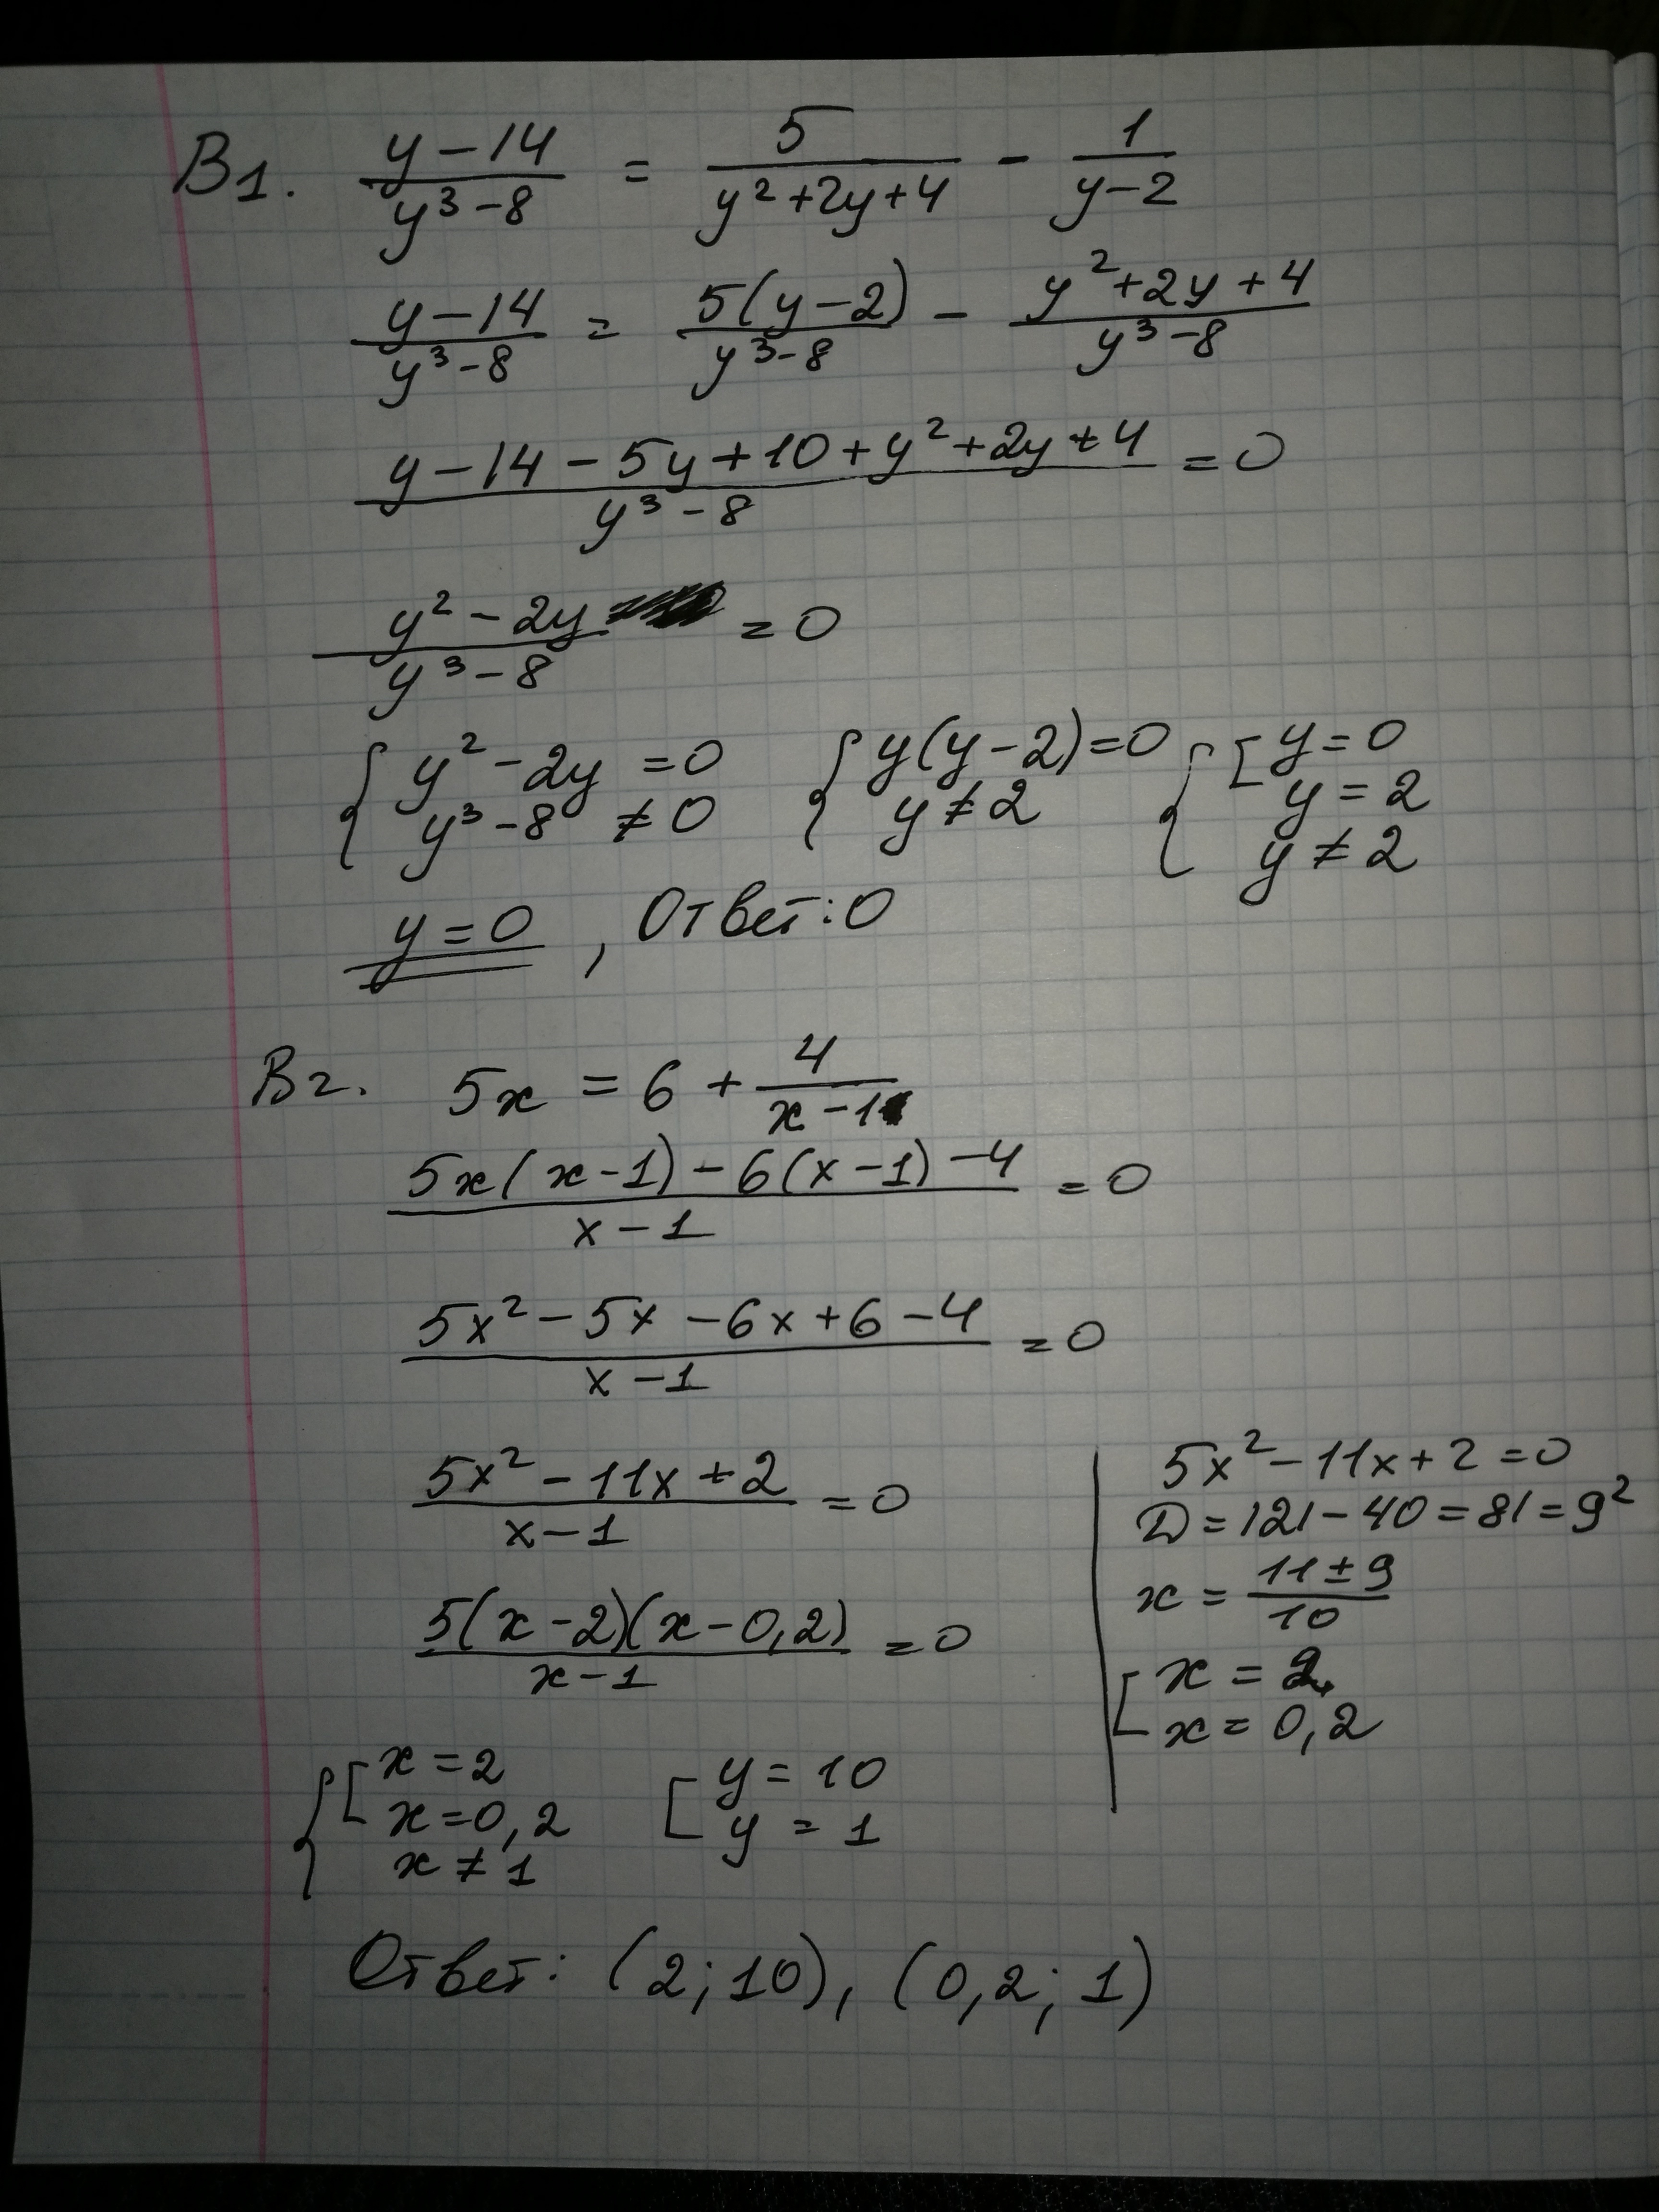 В1. (y-14)/(y³-8) = 5/(y²+2y+4) - 1/(y-2)
(y-14)/(y³-8) = 5(y-2)/(y³-8) - (y²+2y+4)/(y³-8)
(y-14-5y+10+y²+2y+4)/(y³-8) = 0
(y²-2y)/(y³-8) = 0
{ y²-2y = 0 { y(y-2)=0 { [ y=0
y³-8 ≠ 0 y≠2 y=2
y≠2
y=0, Ответ: 0
В2. 5x = 6 + 4/(x-1)
(5x(x-1)-6(x-1)-4)/(x-1) = 0
(5x²-5x-6x+6-4)/(x-1) = 0
(5x²-11x+2)/(x-1) = 0
5(x-2)(x-0,2)/(x-1) = 0
5x²-11x+2=0
D=121-40=81=9²
x = (11±9)/10
[ x = 2
x = 0,2
{ [ x=2 [ y=10
x=0,2 y=1
x≠1
Ответ: (2;10), (0,2; 1)